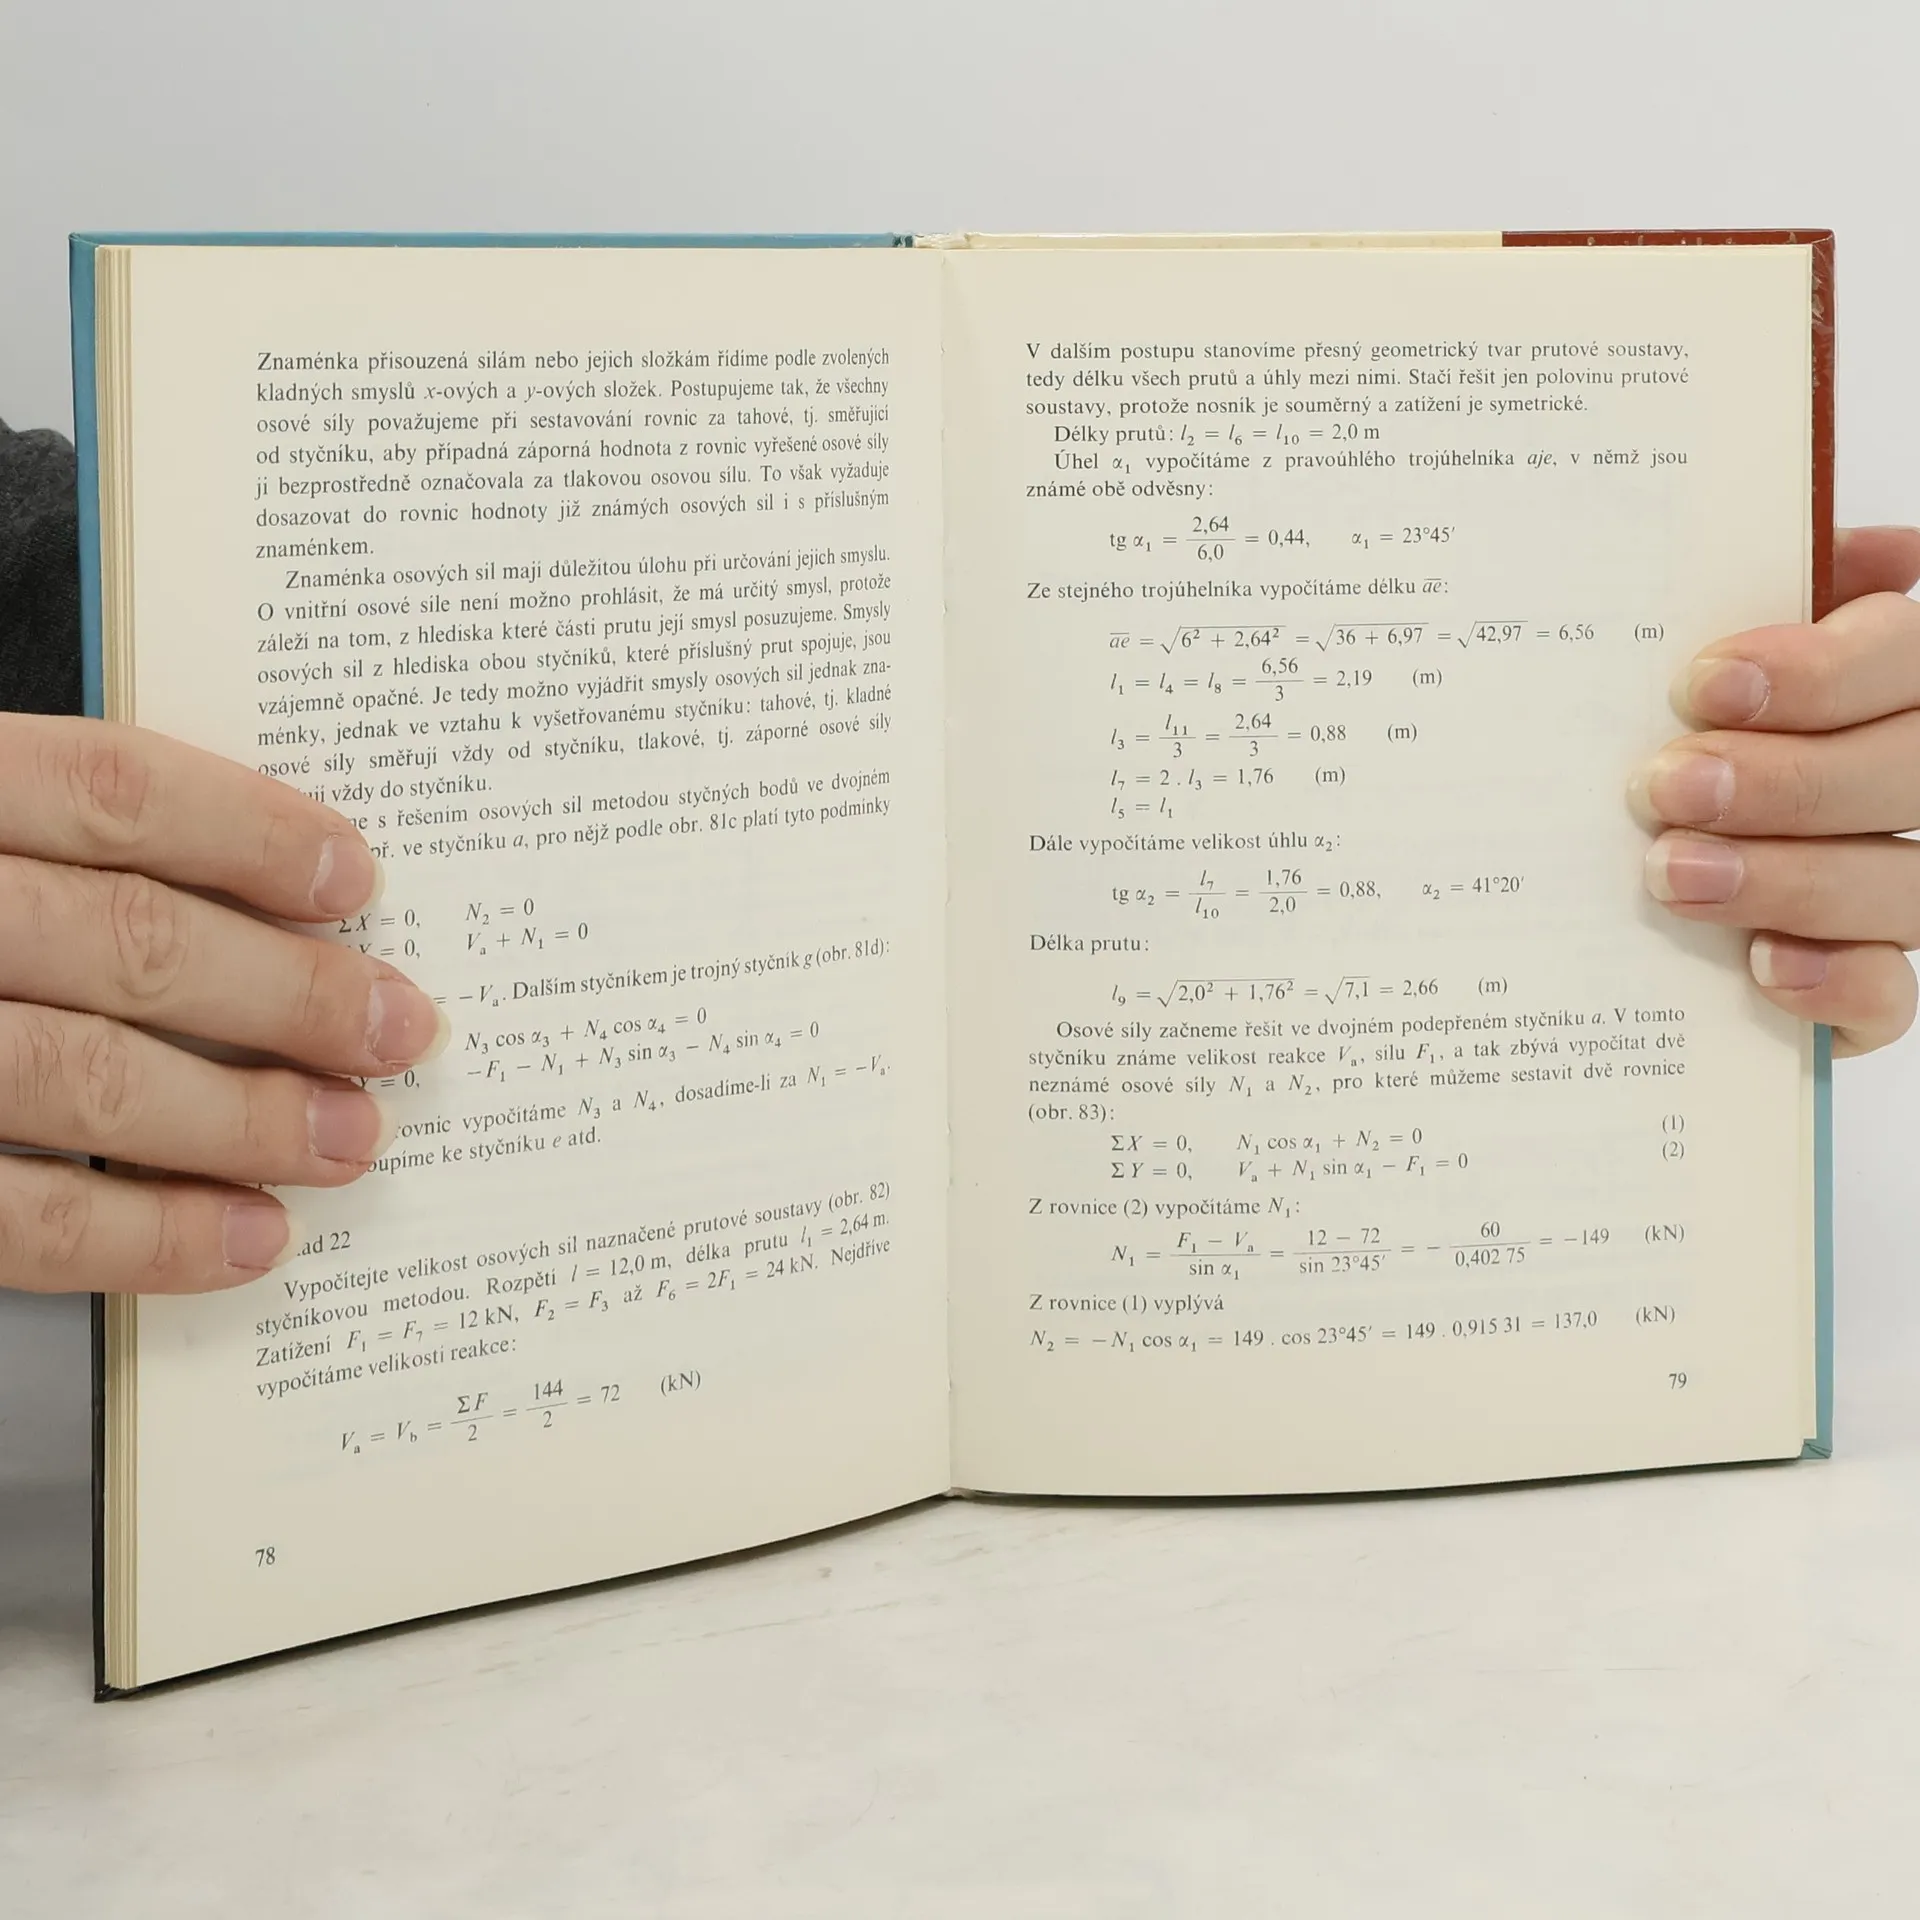 Znaménka přisouzená silám nebo jejich složkám řídíme podle zvolených
kladných smyslů x-ových a y-ových složek. Postupujeme tak, že všechny
osové síly považujeme při sestavování rovnic za tahové, tj. směřující
od styčníku, aby případná záporná hodnota z rovnic vyřešené osové síly
ji bezprostředně označovala za tlakovou osovou sílu. To však vyžaduje
dosazovat do rovnic hodnoty již známých osových sil i s příslušným
znaménkem.
Znaménka osových sil mají důležitou úlohu při určování jejich smyslu.
O vnitřní osové síle není možno prohlásit, že má určitý smysl, protože
záleží na tom, z hlediska které části prutu její smysl posuzujeme. Smysly
osových sil z hlediska obou styčníků, které příslušný prut spojuje, jsou
vzájemně opačné. Je tedy možno vyjádřit smysly osových sil jednak zna-
ménky, jednak ve vztahu k vyšetřovanému styčníku: tahové, tj. kladné
osové síly směřují vždy od styčníku, tlakové, tj. záporné osové síly
vždy do styčníku.
s řešením osových sil metodou styčných bodů ve dvojném
ve styčníku a, pro nějž podle obr. 81c platí tyto podmínky
ΣX = 0, N₂ = 0
Y = 0, Vₐ + N₁ = 0
= −Vₐ. Dalším styčníkem je trojný styčník g (obr. 81d):
N₃ cos α₃ + N₄ cos α₄ = 0
Y = 0, −F₁ − N₁ + N₃ sin α₃ − N₄ sin α₄ = 0
rovnic vypočítáme N₃ a N₄, dosadíme-li za N₁ = −Vₐ.
ke styčníku e atd.
22
Vypočítejte velikost osových sil naznačené prutové soustavy (obr. 82)
styčníkovou metodou. Rozpětí l = 12,0 m, délka prutu l₁ = 2,64 m.
Zatížení F₁ = F₇ = 12 kN, F₂ = F₃ až F₆ = 2F₁ = 24 kN. Nejdříve
vypočítáme velikosti reakce:
Vₐ = V_b = ΣF/2 = 144/2 = 72 (kN)
78
V dalším postupu stanovíme přesný geometrický tvar prutové soustavy,
tedy délku všech prutů a úhly mezi nimi. Stačí řešit jen polovinu prutové
soustavy, protože nosník je souměrný a zatížení je symetrické.
Délky prutů: l₂ = l₆ = l₁₀ = 2,0 m
Úhel α₁ vypočítáme z pravoúhlého trojúhelníka aje, v němž jsou
známé obě odvěsny:
tg α₁ = 2,64/6,0 = 0,44, α₁ = 23°45′
Ze stejného trojúhelníka vypočítáme délku a̅e̅:
a̅e̅ = √(6² + 2,64²) = √(36 + 6,97) = √42,97 = 6,56 (m)
l₁ = l₄ = l₈ = 6,56/3 = 2,19 (m)
l₃ = l₁₁/3 = 2,64/3 = 0,88 (m)
l₇ = 2 . l₃ = 1,76 (m)
l₅ = l₁
Dále vypočítáme velikost úhlu α₂:
tg α₂ = l₇/l₁₀ = 1,76/2,0 = 0,88, α₂ = 41°20′
Délka prutu:
l₉ = √(2,0² + 1,76²) = √7,1 = 2,66 (m)
Osové síly začneme řešit ve dvojném podepřeném styčníku a. V tomto
styčníku známe velikost reakce Vₐ, sílu F₁, a tak zbývá vypočítat dvě
neznámé osové síly N₁ a N₂, pro které můžeme sestavit dvě rovnice
(obr. 83):
ΣX = 0, N₁ cos α₁ + N₂ = 0 (1)
ΣY = 0, Vₐ + N₁ sin α₁ − F₁ = 0 (2)
Z rovnice (2) vypočítáme N₁:
N₁ = (F₁ − Vₐ)/sin α₁ = (12 − 72)/sin 23°45′ = − 60/0,402 75 = −149 (kN)
Z rovnice (1) vyplývá
N₂ = −N₁ cos α₁ = 149 . cos 23°45′ = 149 . 0,915 31 = 137,0 (kN)
79